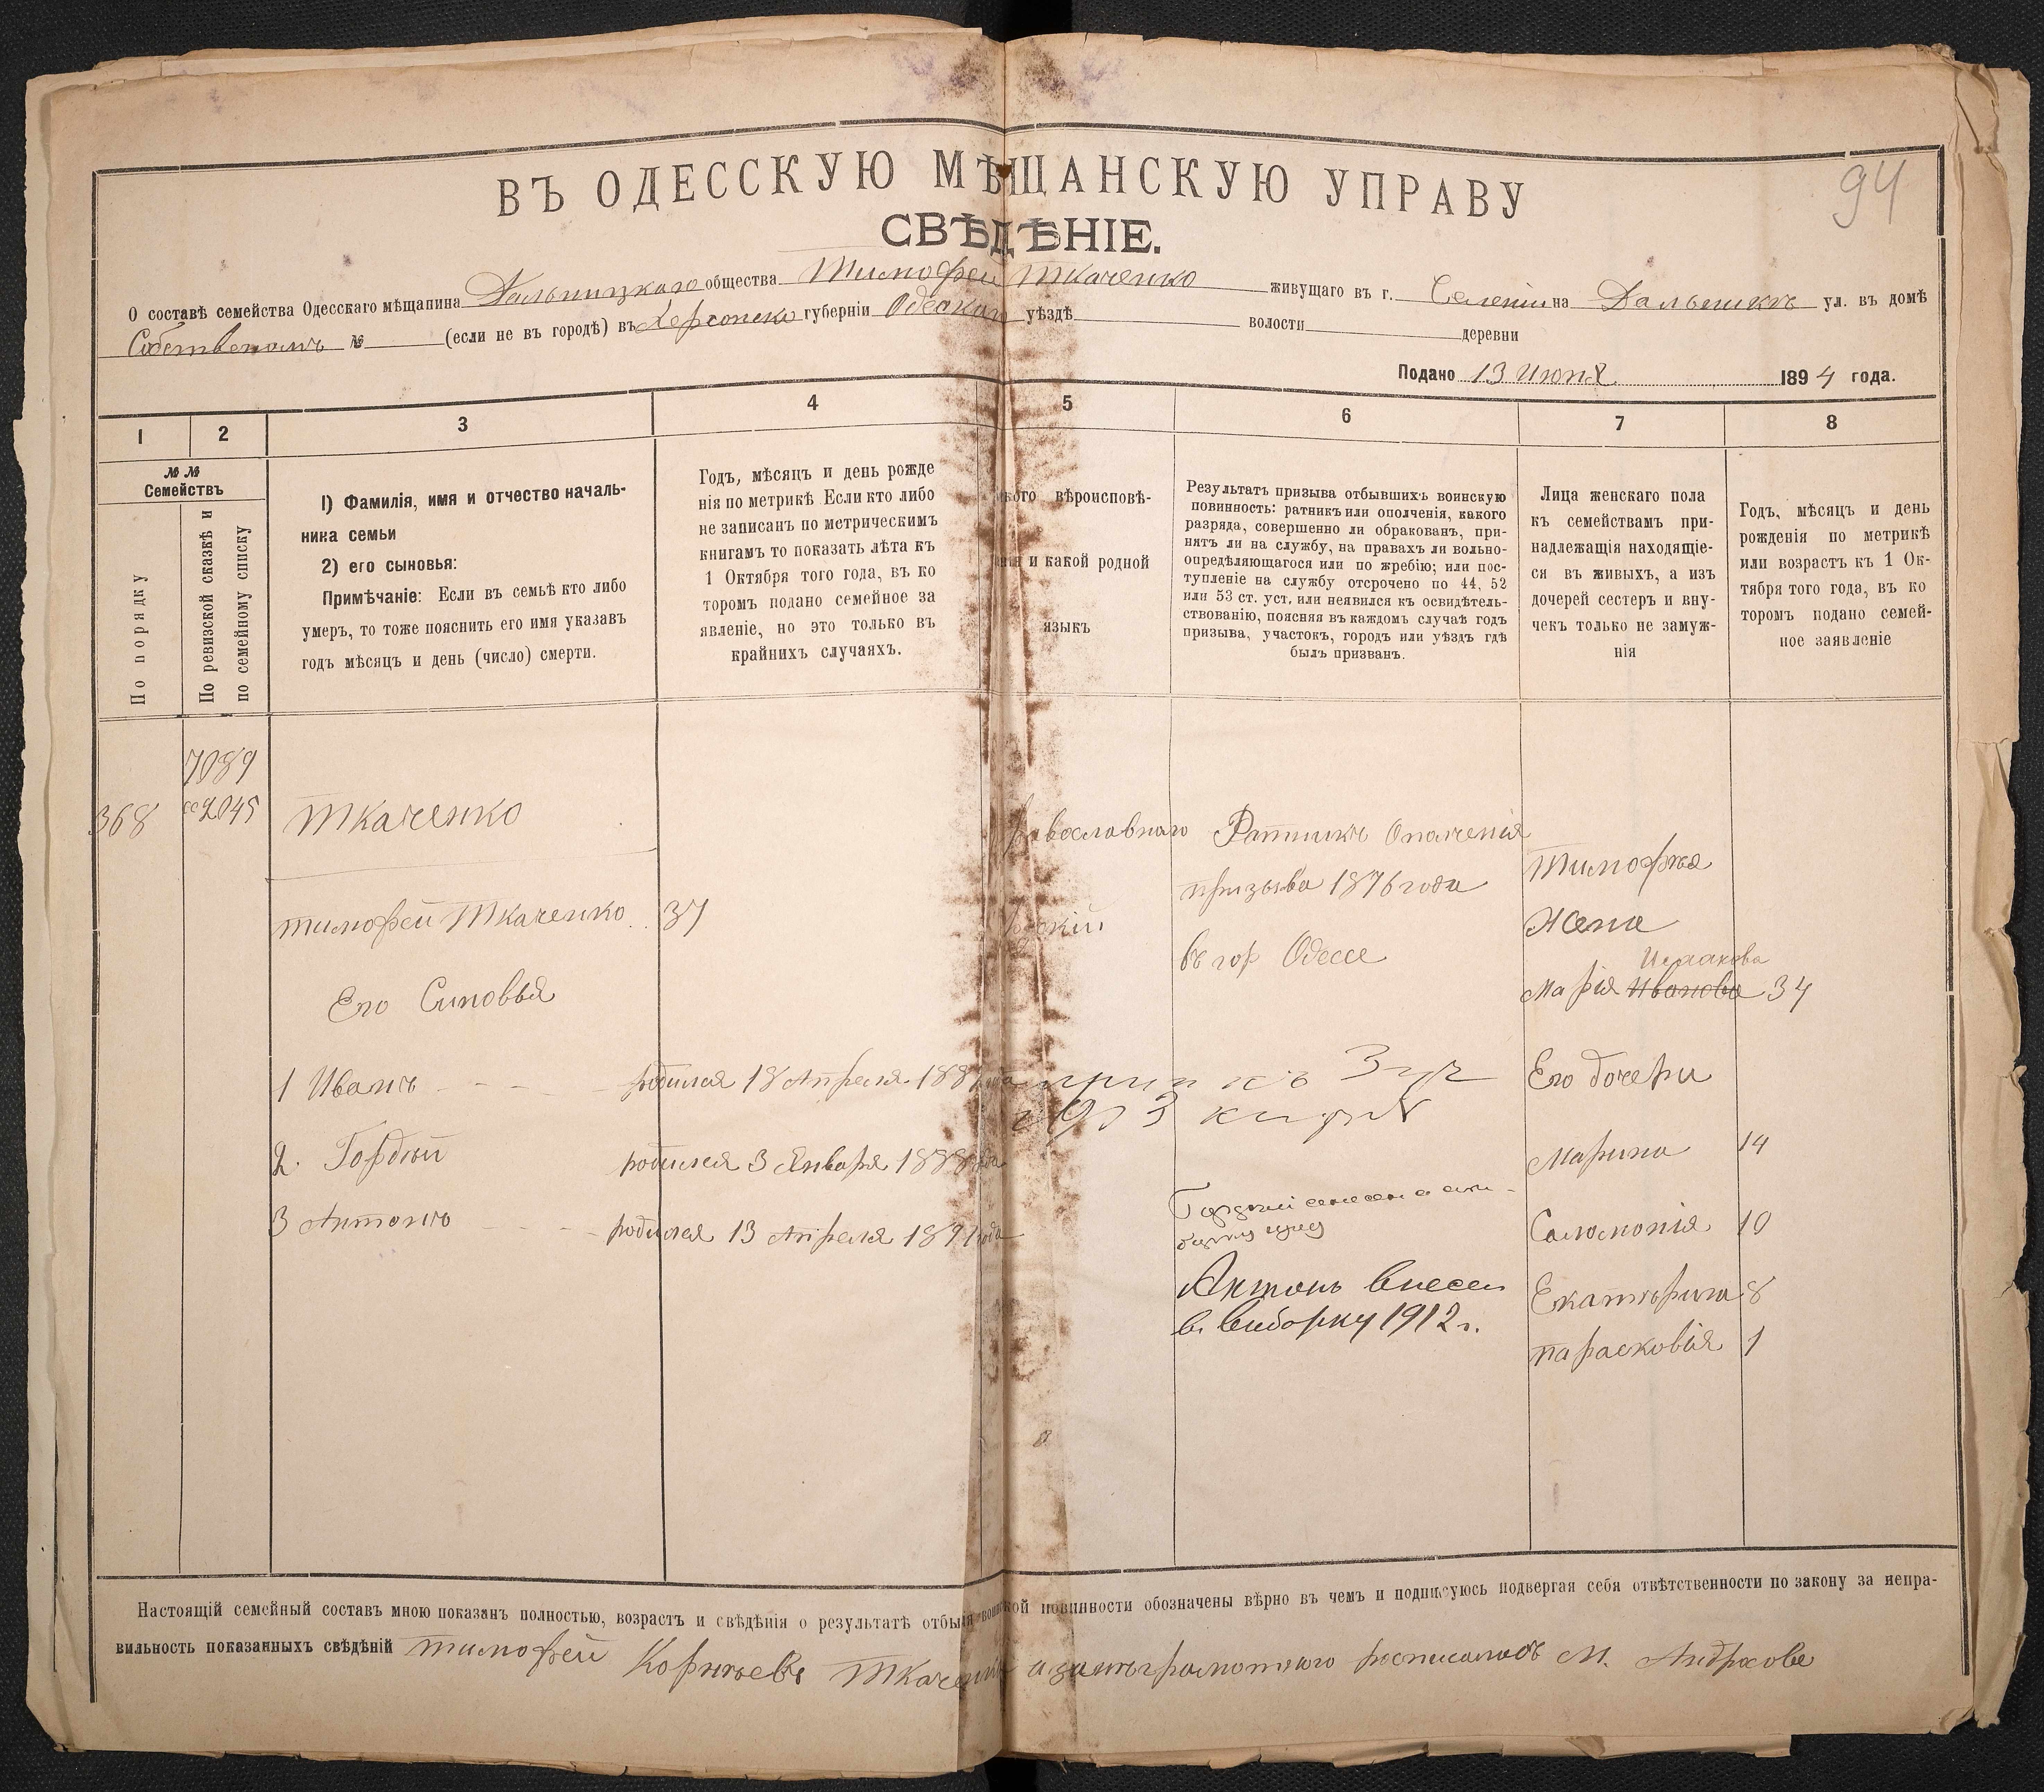 94
ВЪ ОДЕССКУЮ МѢЩАНСКУЮ УПРАВУ
СВѢДѢНІЕ.
О составѣ семейства Одесскаго мѣщанина Дальницкаго общества Тимофей Ткаченко живущаго въ г. Селеніи на Дальникъ ул. въ домѣ
Собственомъ № (если не въ городѣ) въ Херсонско губерніи Одескаго уѣздѣ волости деревни
Подано 13 Июня 1894 года.
1 2 3 4 5 6 7 8
№ №
Семействъ
По порядку
По ревизской сказкѣ и
по семейному списку
1) Фамилія, имя и отчество началь-
ника семьи
2) его сыновья:
Примѣчаніе: Если въ семьѣ кто либо
умеръ, то тоже пояснить его имя указавъ
годъ мѣсяцъ и день (число) смерти.
Годъ, мѣсяцъ и день рожде
нія по метрикѣ Если кто либо
не записанъ по метрическимъ
книгамъ то показать лѣта къ
1 Октября того года, въ ко
торомъ подано семейное за
явленіе, но это только въ
крайнихъ случаяхъ.
вѣроисповѣ-
и какой родной
языкъ
Результатъ призыва отбывшихъ воинскую
повинность: ратникъ или ополченія, какого
разряда, совершенно ли обракованъ, при-
нятъ ли на службу, на правахъ ли вольно-
опредѣляющагося или по жребію; или пос-
тупленіе на службу отсрочено по 44, 52
или 53 ст. уст. или неявился къ освидѣтель-
ствованію, поясняя въ каждомъ случаѣ годъ
призыва, участокъ, городъ или уѣздъ гдѣ
былъ призванъ.
Лица женскаго пола
къ семействамъ при-
надлежащія находящіе-
ся въ живыхъ, а изъ
дочерей сестеръ и вну-
чекъ только не замуж-
нія
Годъ, мѣсяцъ и день
рожденія по метрикѣ
или возрастъ къ 1 Ок-
тября того года, въ ко
торомъ подано семей-
ное заявленіе
7089
368 2045 Ткаченко
Православнаго Ратникъ Ополченія
призыва 1876 года
въ гор Одессе
Тимофѣя
Жена
Исаакова
Марія Иванова 34
тимофей Ткаченко 37
Его Синовья
1 Иванъ родился 18 Апреля 188
1903
Его дочери
2. Гордѣй родился 3 Января 1888 года
Марина 14
3 Антонъ родился 13 Апреля 1891 года
Гордѣй
Соломонія 10
Антонъ внесен
в виборку 1912 г.
Екатѣрина 8
парасковія 1
Настоящій семейный составъ мною показанъ полностью, возрастъ и свѣдѣнія о результатѣ отбытія воинской повинности обозначены вѣрно въ чемъ и подписуюсь подвергая себя отвѣтственности по закону за непра-
вильность показанныхъ свѣдѣній тимофей Корнѣевъ Ткаченко а за нѣграмотного росписалъсъ М. Андросове